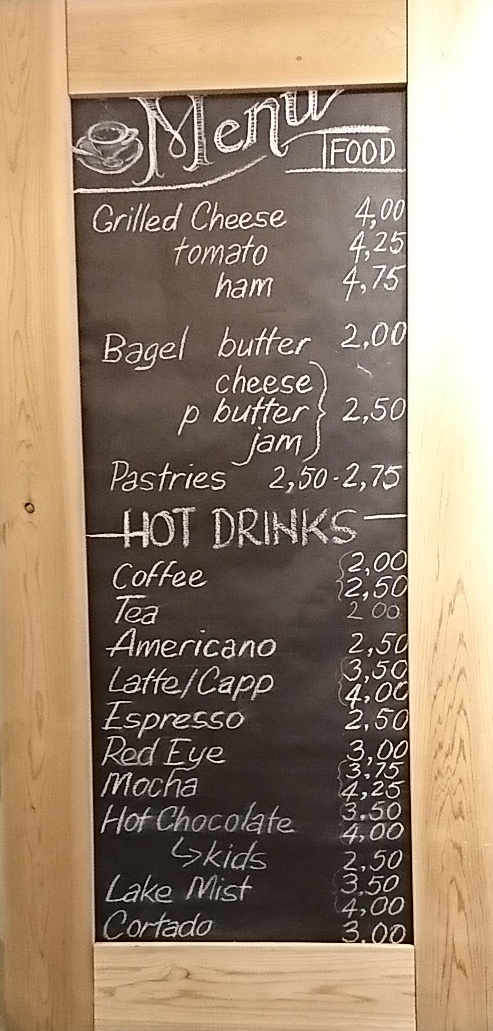 Menu
FOOD
Grilled Cheese 4,00
tomato 4,25
ham 4,75
Bagel butter 2,00
cheese
p butter 2,50
jam
Pastries 2,50-2,75
HOT DRINKS
Coffee 2,00
2,50
Tea 2 00
Americano 2,50
Latte/Capp 3,50
4,00
Espresso 2,50
Red Eye 3,00
Mocha 3.75
4,25
Hot Chocolate 3.50
4,00
↳kids 2,50
Lake Mist 3.50
4,00
Cortado 3.00